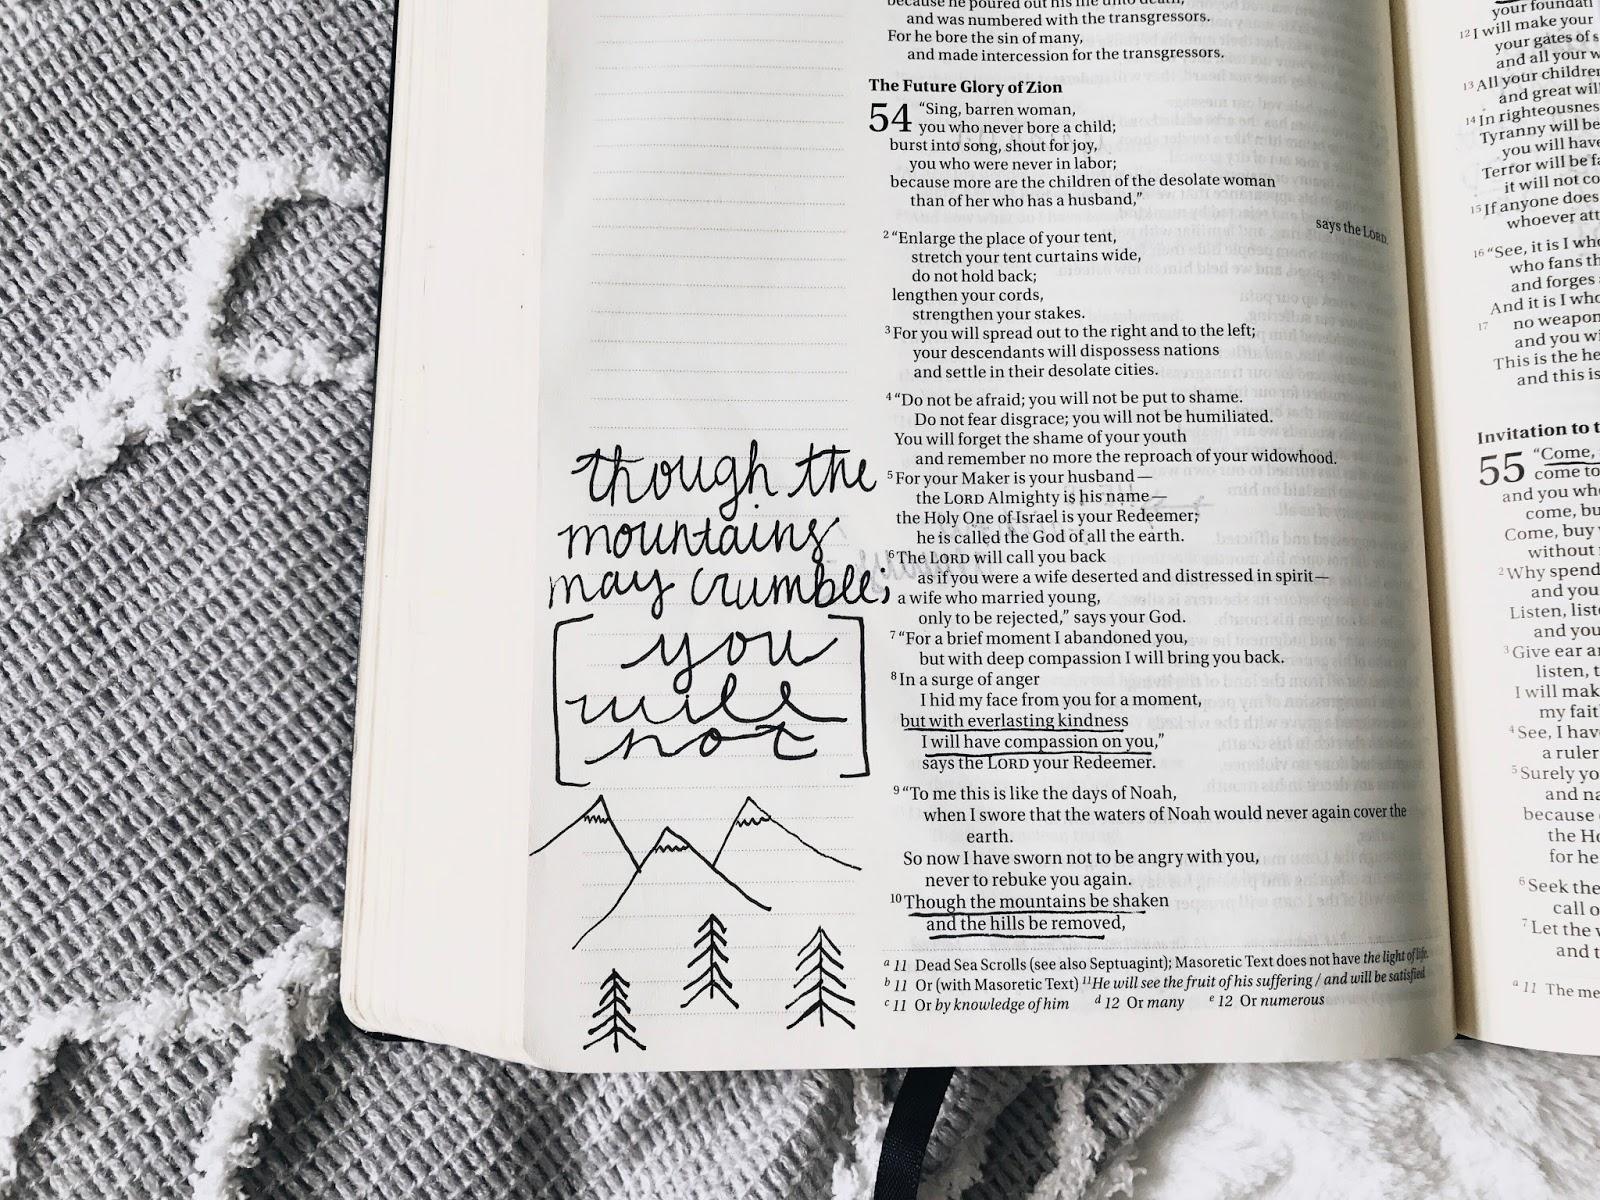 because he poured out his life unto death,
and was numbered with the transgressors.
For he bore the sin of many,
and made intercession for the transgressors.
The Future Glory of Zion
54 “Sing, barren woman,
you who never bore a child;
burst into song, shout for joy,
you who were never in labor;
because more are the children of the desolate woman
than of her who has a husband,”
says the LORD.
2 “Enlarge the place of your tent,
stretch your tent curtains wide,
do not hold back;
lengthen your cords,
strengthen your stakes.
3 For you will spread out to the right and to the left;
your descendants will dispossess nations
and settle in their desolate cities.
4 “Do not be afraid; you will not be put to shame.
Do not fear disgrace; you will not be humiliated.
You will forget the shame of your youth
and remember no more the reproach of your widowhood.
5 For your Maker is your husband—
the LORD Almighty is his name—
the Holy One of Israel is your Redeemer;
he is called the God of all the earth.
6 The LORD will call you back
as if you were a wife deserted and distressed in spirit—
a wife who married young,
only to be rejected,” says your God.
7 “For a brief moment I abandoned you,
but with deep compassion I will bring you back.
8 In a surge of anger
I hid my face from you for a moment,
but with everlasting kindness
I will have compassion on you,”
says the LORD your Redeemer.
9 “To me this is like the days of Noah,
when I swore that the waters of Noah would never again cover the
earth.
So now I have sworn not to be angry with you,
never to rebuke you again.
10 Though the mountains be shaken
and the hills be removed,
a 11 Dead Sea Scrolls (see also Septuagint); Masoretic Text does not have the light of life.
b 11 Or (with Masoretic Text) 11He will see the fruit of his suffering / and will be satisfied
c 11 Or by knowledge of him d 12 Or many e 12 Or numerous
though the
mountains
may crumble;
[you
will
not]
your
12 I will make your
your gates of
and all your
13 All your children
and great will
14 In
Tyranny will be
you will have
Terror will be
it will not
15 If anyone does
whoever
16 “See, it is I
who fans
and forges
And it is I
17 no weapon
and you
This is the
and this is
Invitation to
55 “Come,
come to
and you
come,
Come, buy
without
2 Why spend
and you
Listen,
and your
3 Give ear
listen,
I will
my
4 See, I have
a ruler
5 Surely
and
because
the
for he
6 Seek the
call
7 Let the
and
a 11 The